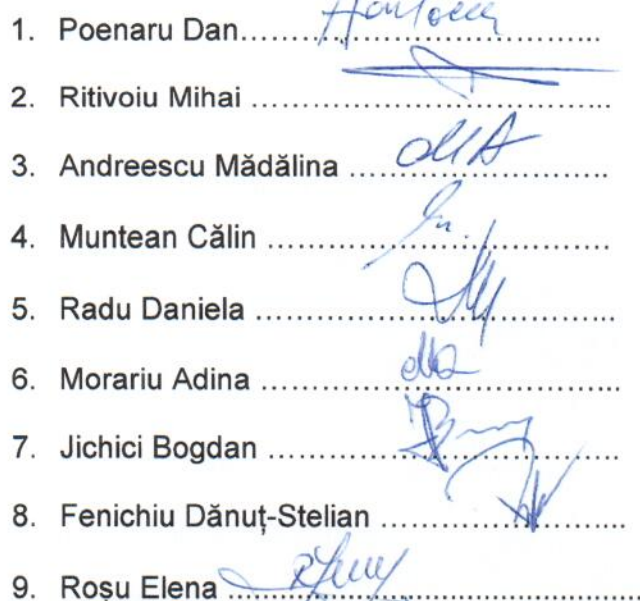 1. Poenaru Dan..........................................
2. Ritivoiu Mihai ..........................................
3. Andreescu Mădălina ..............................
4. Muntean Călin ........................................
5. Radu Daniela ..........................................
6. Morariu Adina ..........................................
7. Jichici Bogdan ........................................
8. Fenichiu Dănuț-Stelian ............................
9. Roșu Elena ..............................................